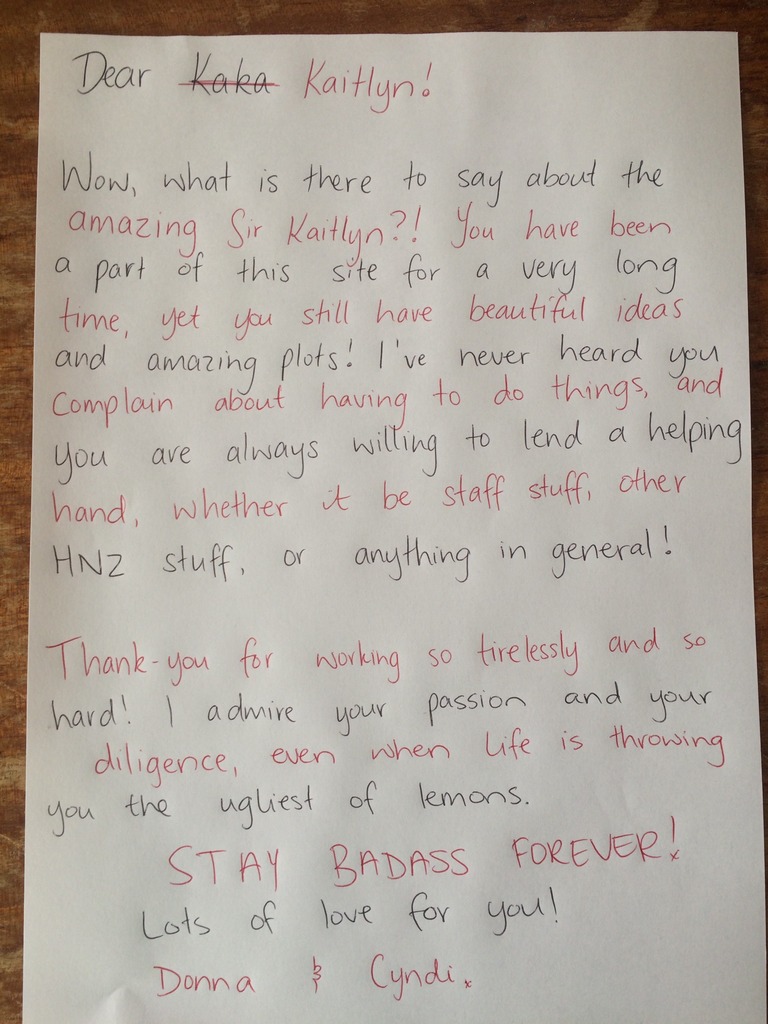 Dear Kaka Kaitlyn!
Wow, what is there to say about the
amazing Sir Kaitlyn?! You have been
a part of this site for a very long
time, yet you still have beautiful ideas
and amazing plots! I've never heard you
complain about having to do things, and
you are always willing to lend a helping
hand, whether it be staff stuff, other
HNZ stuff, or anything in general!
Thank-you for working so tirelessly and so
hard! I admire your passion and your
diligence, even when life is throwing
you the ugliest of lemons.
STAY BADASS FOREVER!
Lots of love for you!
Donna & Cyndi.